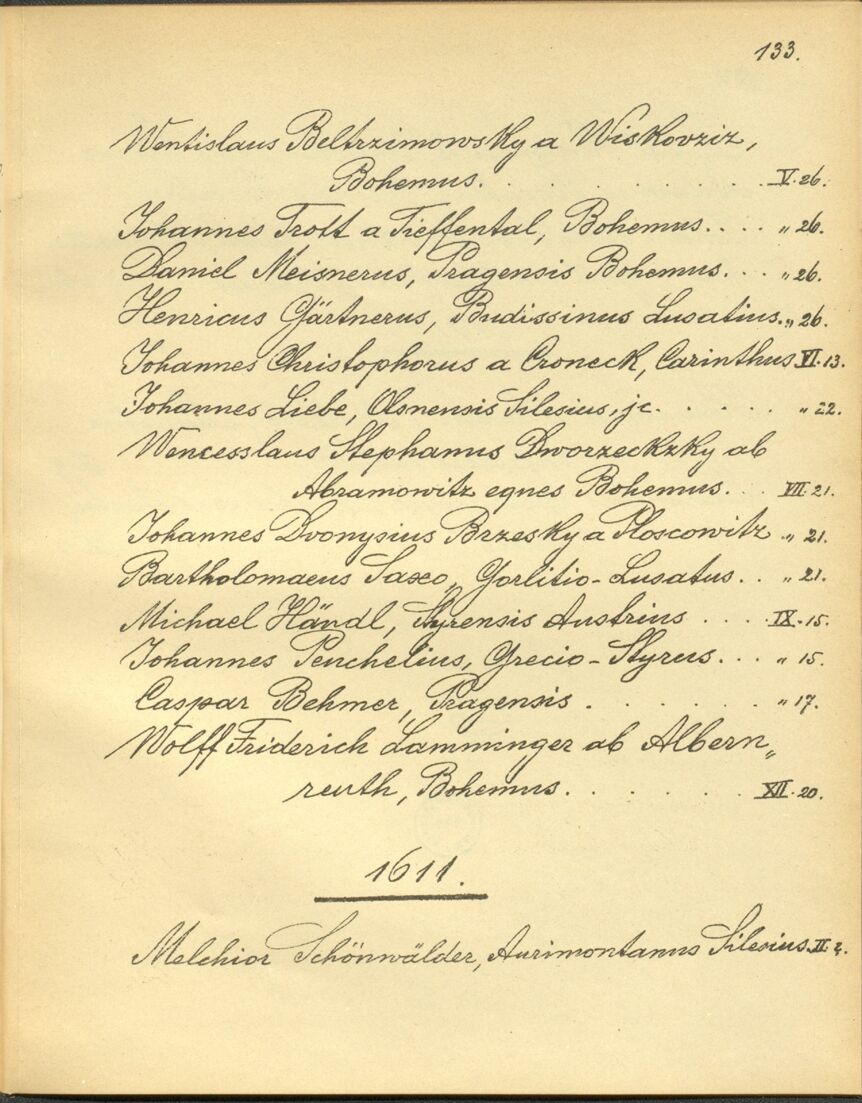 133.
Wentislaus Beltrzimowsky a Wiskovziz,
Bohemus. . . . . . . . V. 26.
Johannes Trott a Tieffental, Bohemus. . . . „ 26.
Daniel Meisnerus, Pragensis Bohemus. . . „ 26.
Henricus Gärtnerus, Budissinus Lusatius. „ 26.
Johannes Christophorus a Croneck, Carinthus VI. 13.
Johannes Liebe, Olsnensis Silesius, jc. . . . . „ 22.
Wencesslaus Stephanus Dworzeckzky ab
Abramowitz eqnes Bohemus. . . VII. 21.
Johannes Dvonysius Brzesky a Ploscowitz „ 21.
Bartholomaeus Saxo, Gorlitio-Lusatus. . . „ 21.
Michael Händl, Styrensis Austrius . . . . IX. 15.
Johannes Penchelius, Grecio-Styrus. . . „ 15.
Caspar Behmer, Pragensis . . . . . „ 17.
Wolff Friderich Lamminger ab Albern„
reuth, Bohemus. . . . . . XII. 20.
1611.
Melchior Schönwälder, Aurimontanus Silesius. II. 2.